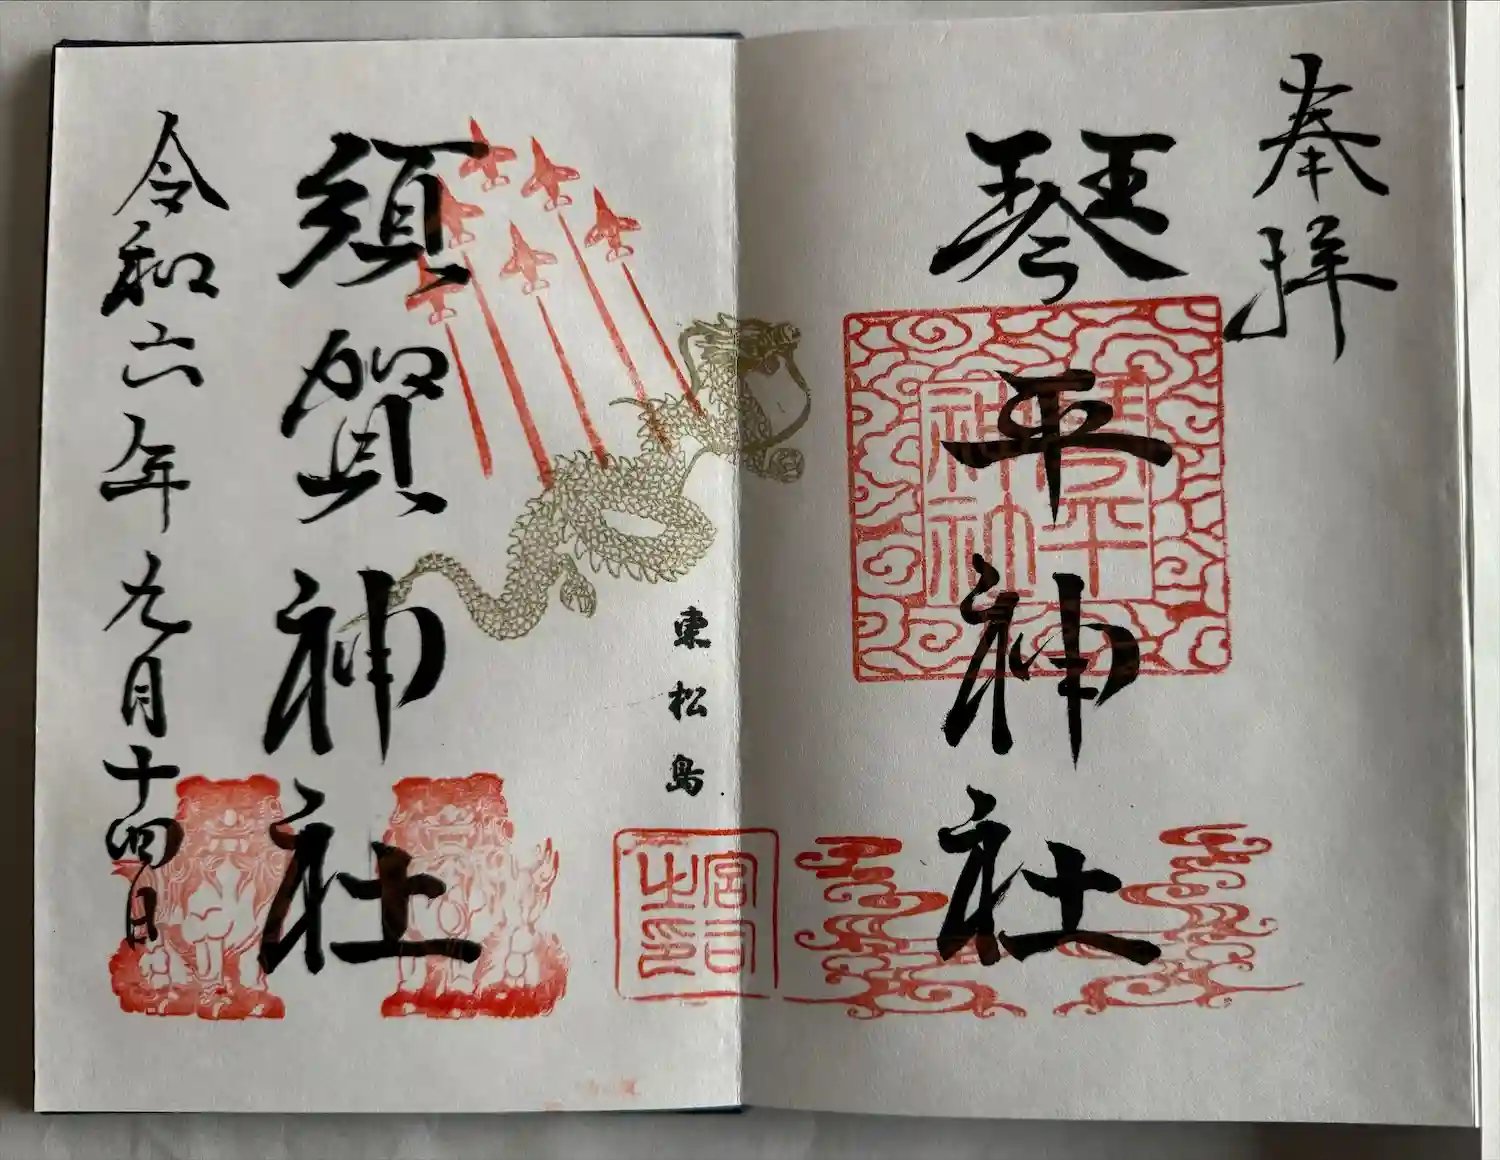 奉拝
琴平神社
琴平神社
東松島
宮司之印
須賀神社
令和六年九月十四日